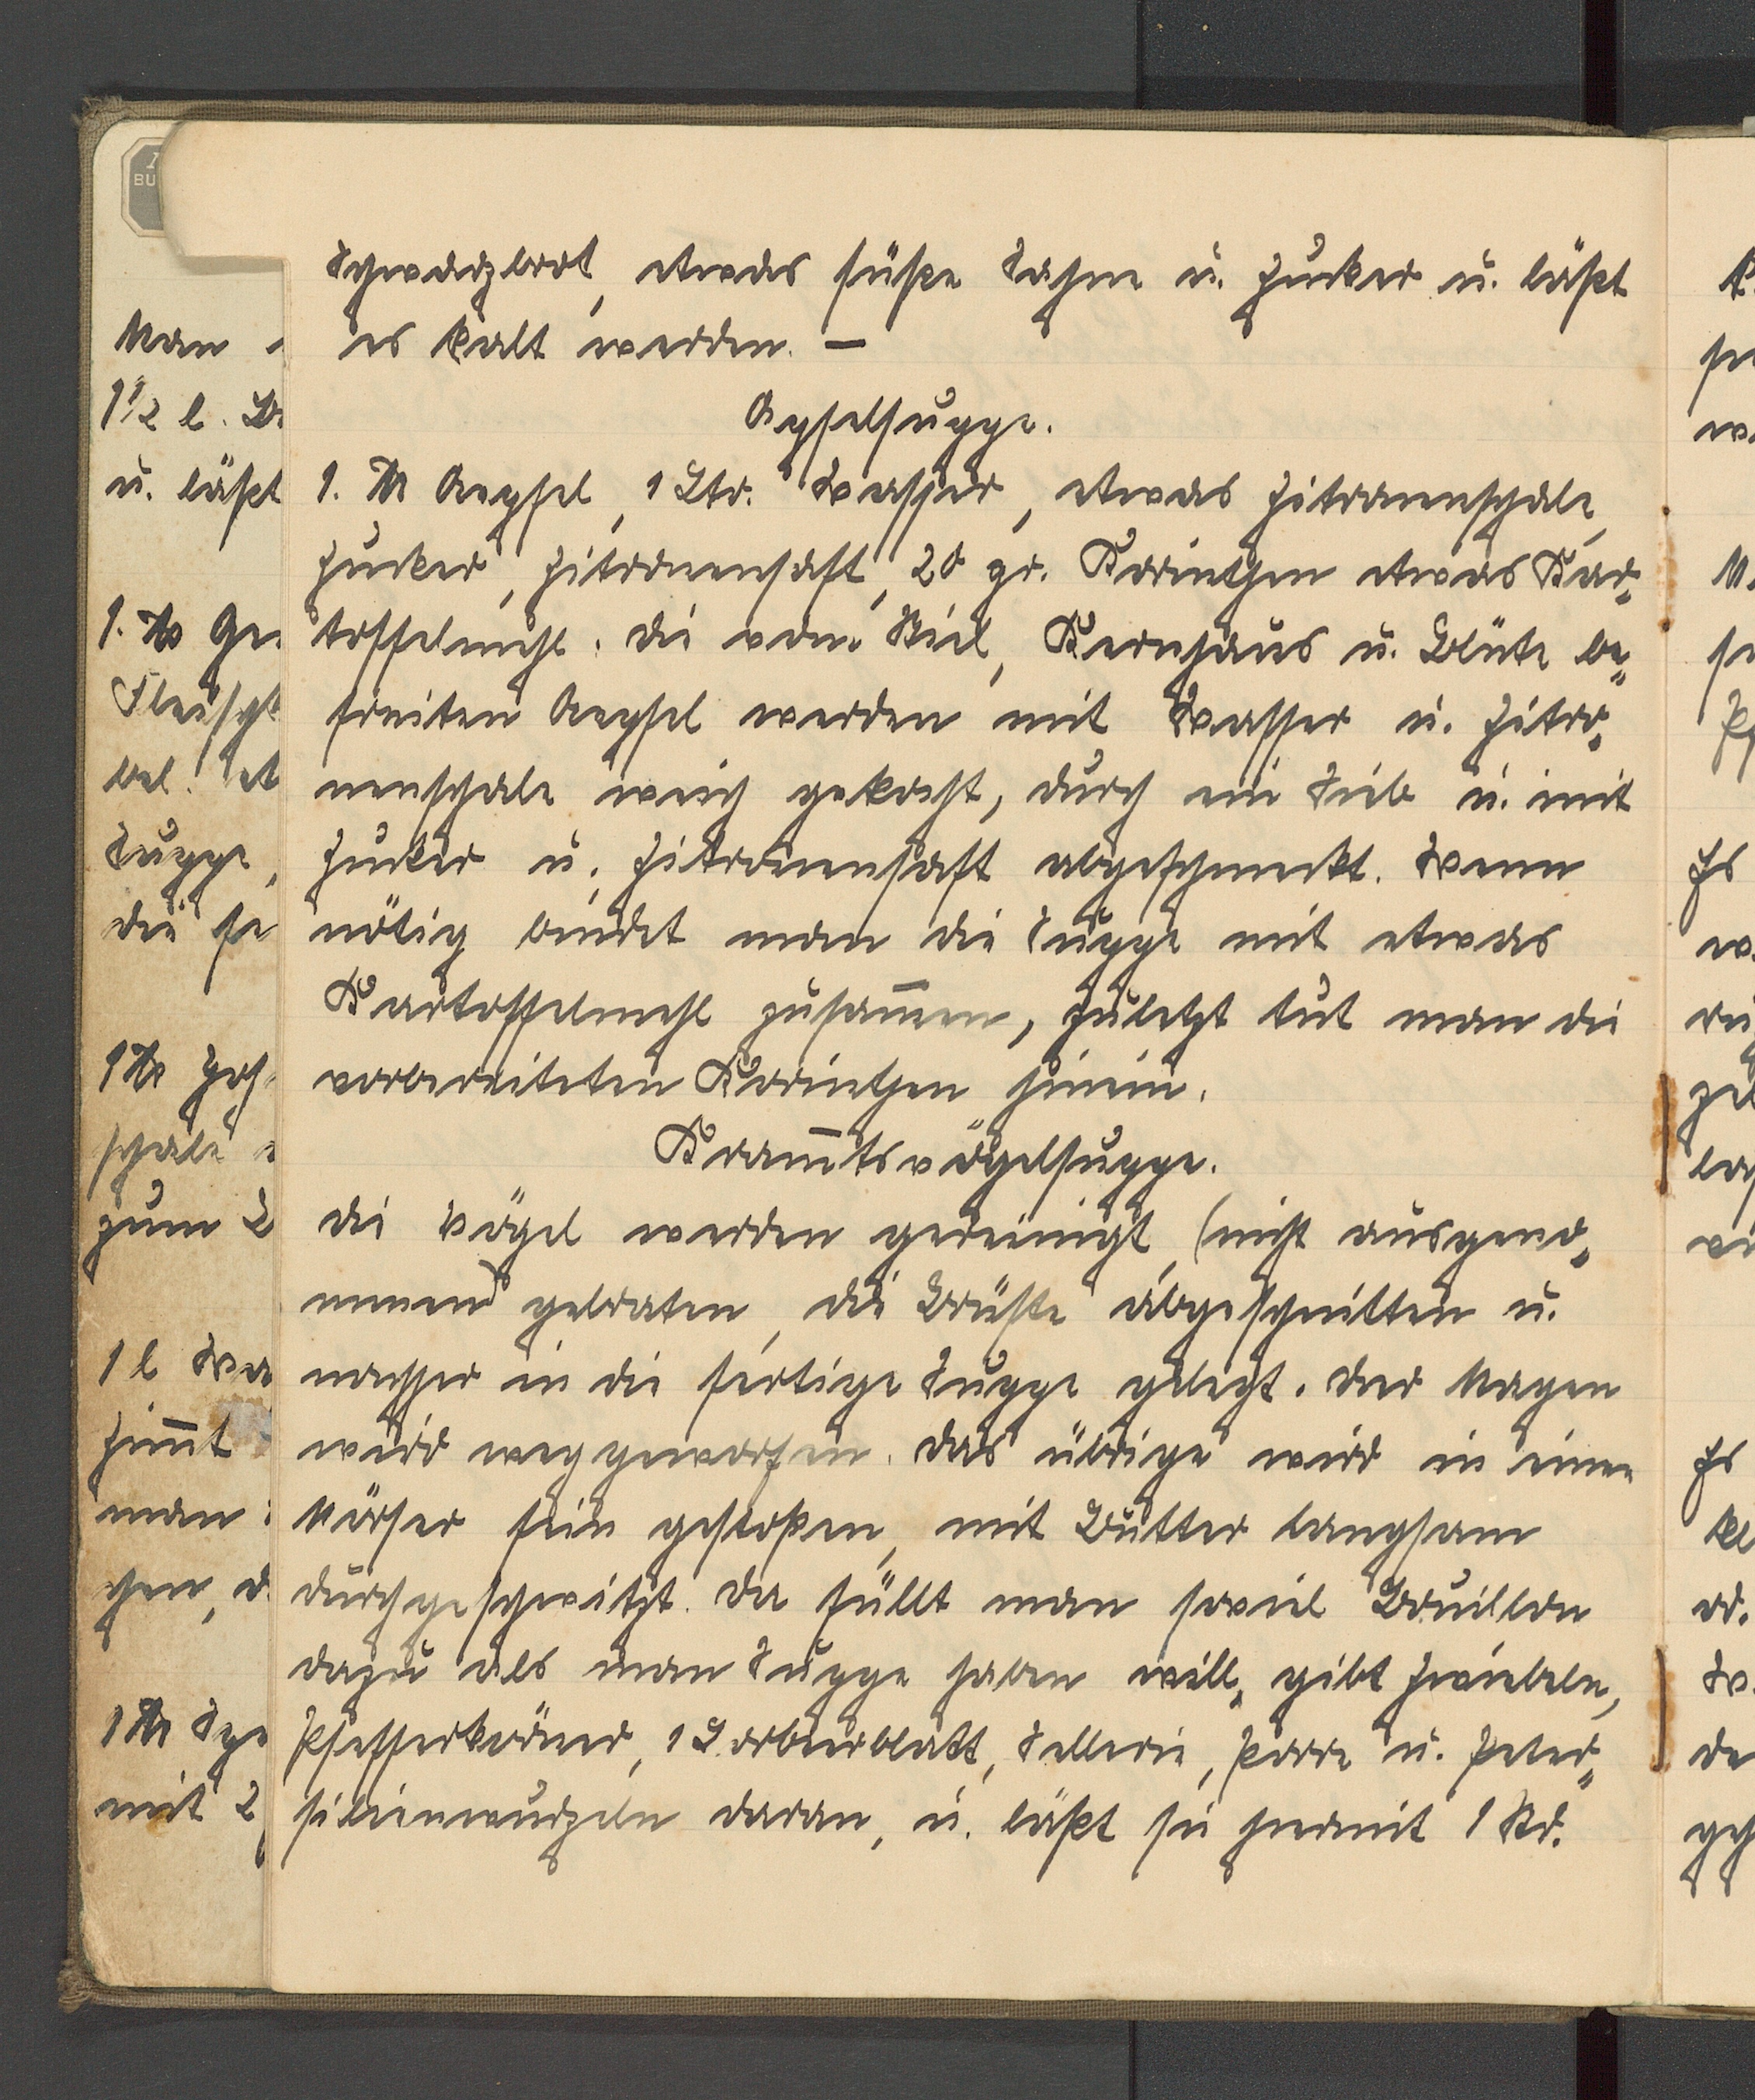 Schwarzbrot, etwas süße Sahne u. Zucker u. läßt
es kalt werden. —
Apfelsuppe.
1. ℔ Aepfel, 1 Ltr. Wasser, etwas Zitronenschale,
Zucker, Zitronensaft, 20 gr. Korinthen etwas Kar-
toffelmehl. Die vom Stiel, Kernhaus u. Blüte be-
freiten Aepfel werden mit Wasser u. Zitro-
nenschale weich gekocht, durch ein Sieb u. mit
Zucker u. Zitronensaft abgeschmeckt. Wenn
nötig bindet man die Suppe mit etwas
Kartoffelmehl zusam̅en, zuletzt tut man die
vorbereiteten Korinthen hinein.
Kram̅tsvögelsuppe.
Die Vögel werden gereinigt, (nicht ausgeno-
mmen) gebraten, die Brüste abgeschnitten u.
nachher in die fertige Suppe gelegt. Der Magen
wird weggeworfen. Das übrige wird in einen
Mörser fein gestoßen, mit Butter langsam
durchgeschwitzt. Da füllt man soviel Bouillon
dazu als man Suppe haben will, gibt Zwiebeln,
Pfefferkörner, 1 Lorbeerblatt, Sellerie, Porre u. Peter-
silienwurzeln daran, u. läßt sie hiermit 1 Std.
Man
1½ l.
u. läßt
1. ℔ Ge
Fleischb
bel. et
Suppe,
die se
1 ℔
schale
zum
1 l Wa
Zim̅t
man
gen, d.
1 ℔ Spa
mit 2